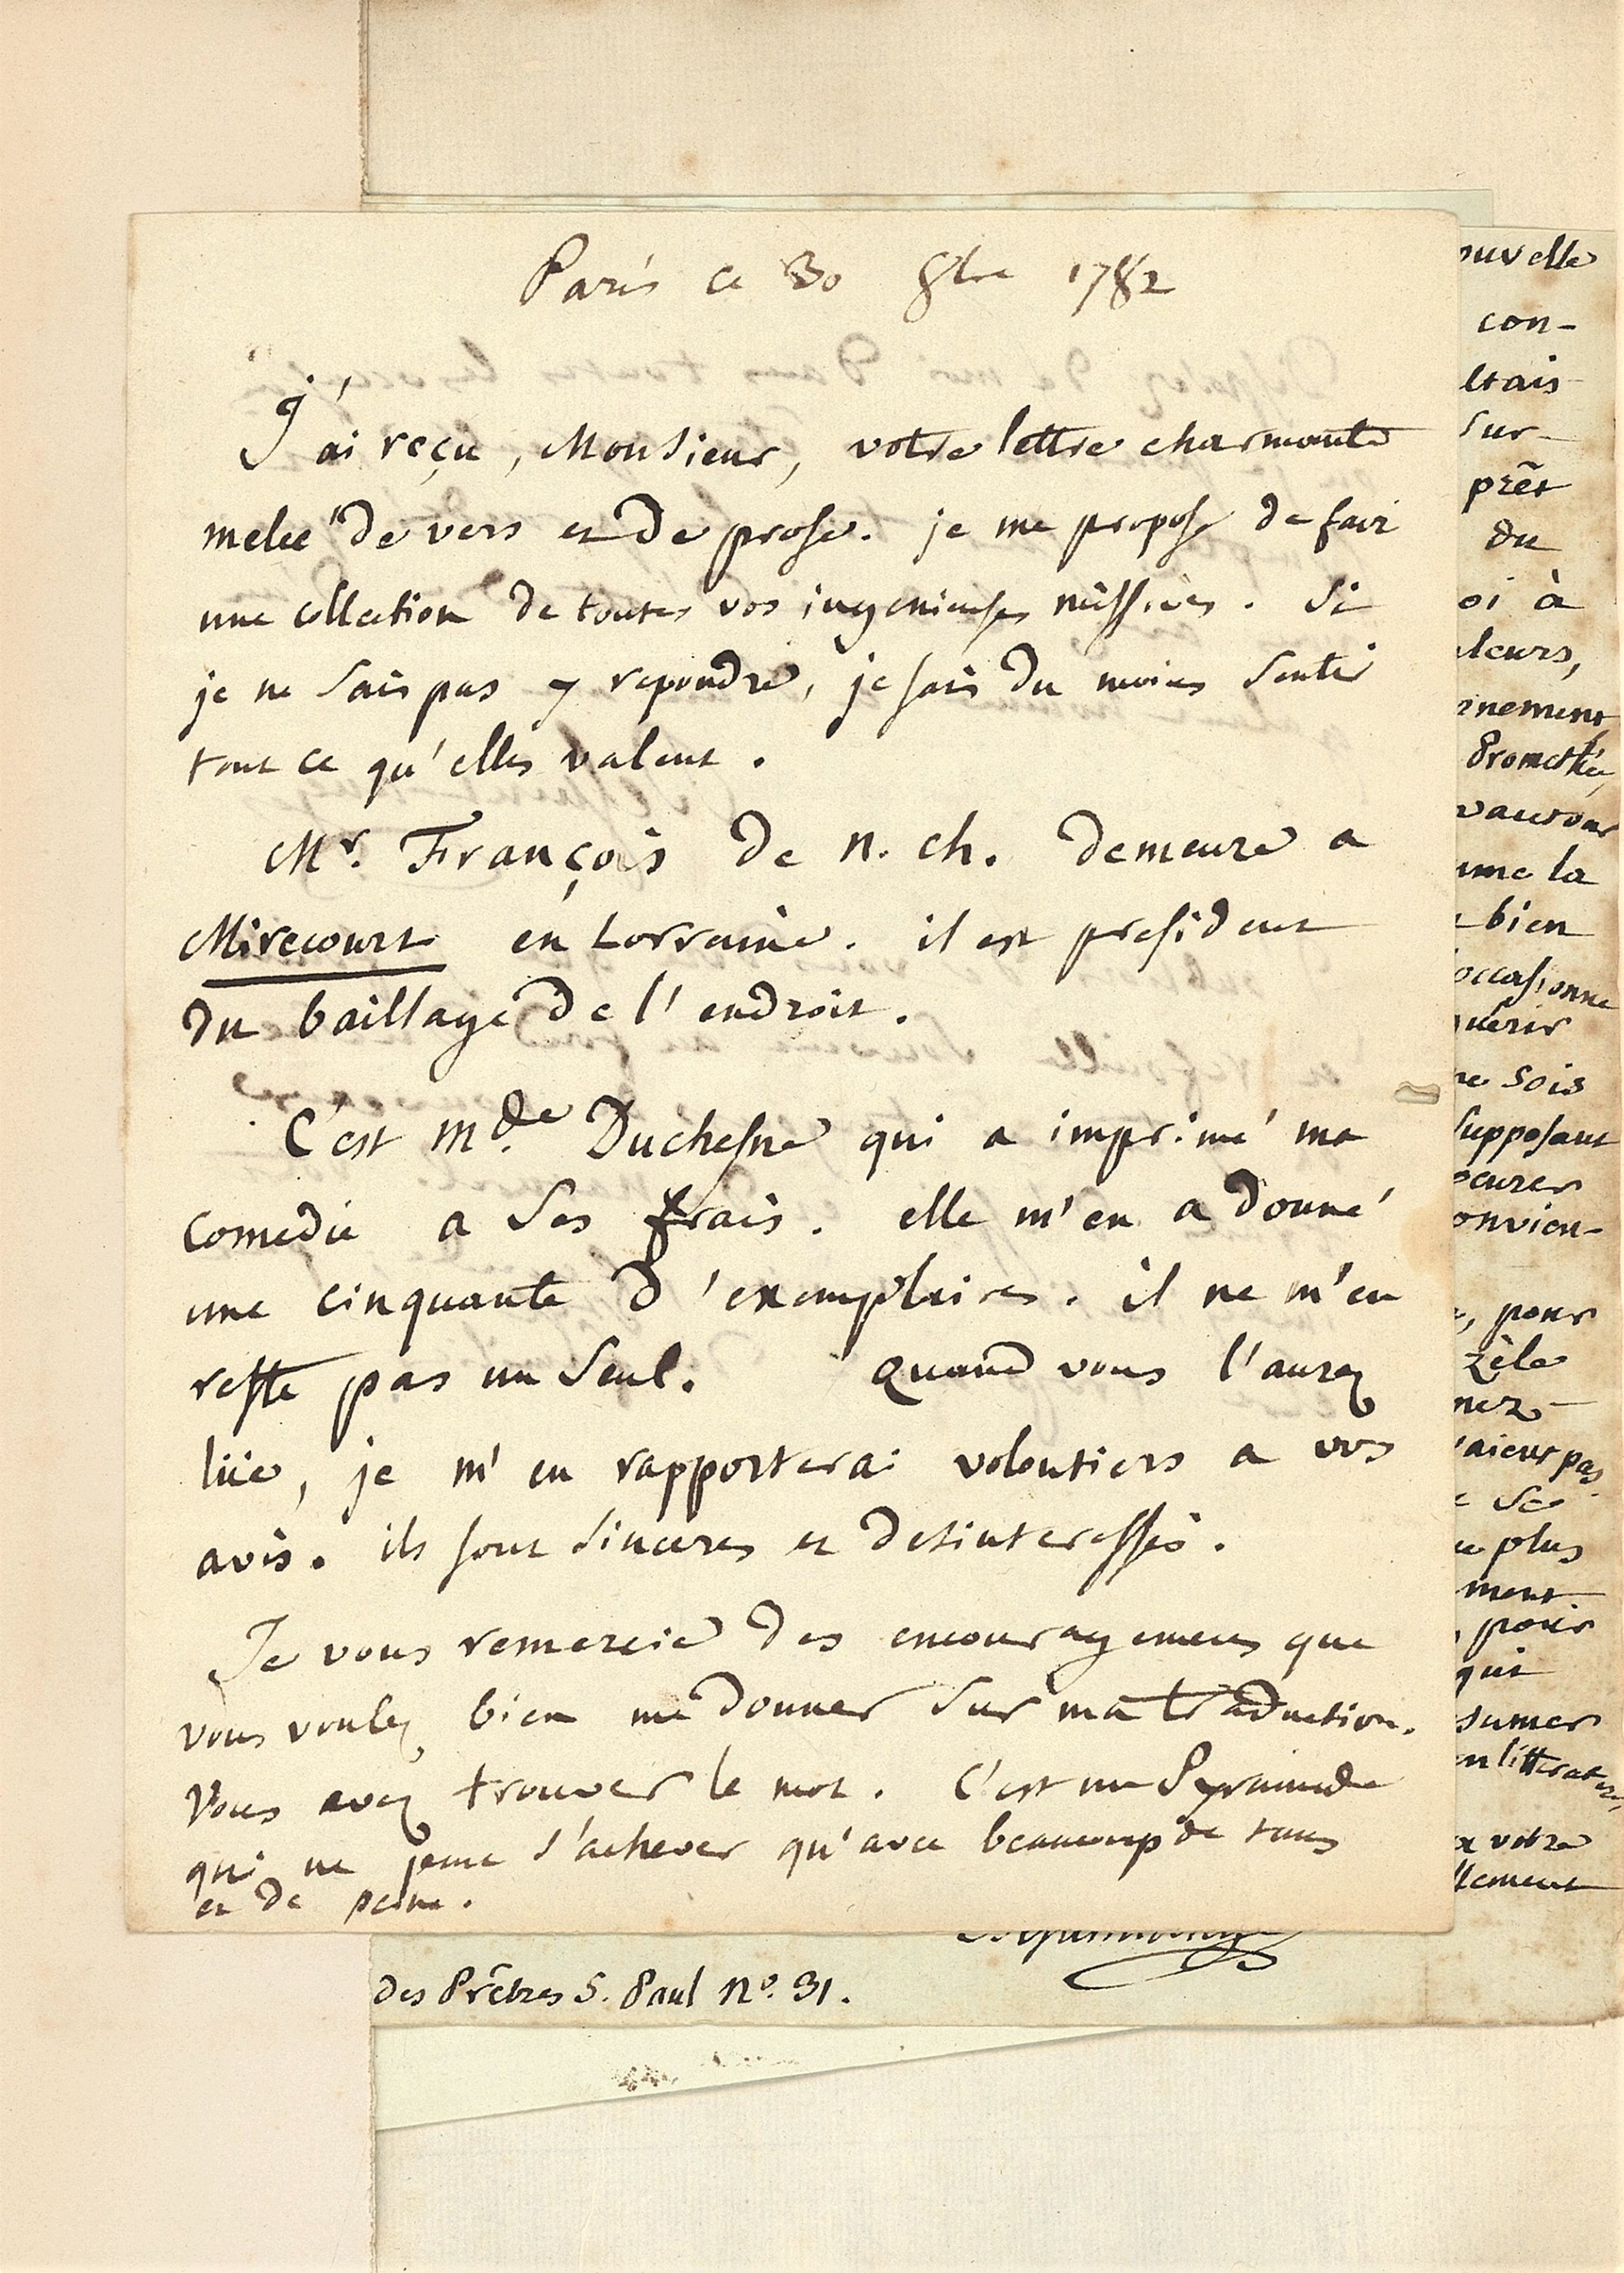 Paris ce 30 8bre 1782
J'ai reçu, Monsieur, votre lettre charmante
melée de vers et de prose. je me propose de faire
une collection de toutes vos ingenieuses missives. Si
je ne sais pas y repondre, je sais du moins sentir
tout ce qu'elles valent.
Mr. François de n. ch. demeure a
Mirecourt en Lorraine. il est president
du baillage de l'endroit.
C'est mde. Duchesne qui a imprimé ma
comedie a ses frais. elle m'en a donné
une cinquante d'exemplaires. il ne m'en
reste pas un seul. Quand vous l'aurez
lüe, je m'en rapporterai volontiers a vos
avis. ils sont sinceres et desinteressés.
Je vous remercie des encouragemens que
vous voulez bien me donner sur ma traduction.
Vous avez trouver le mot. C'est une Pyramide
qui ne peut s'achever qu'avec beaucoup de tems
et de peine.
ouvelle
con-
étais
sur-
prêt
du
oi à
leurs,
nement
Promethée,
vautour
ume la
bien
occasionne
uerir
ne sois
supposant
ocurer
onvien-
, pour
zèle
nez-
aient pas
se
plus
ment
, pour
qui
sumer
en litterature,
votre
llement
des Prêtres S. Paul No. 31.